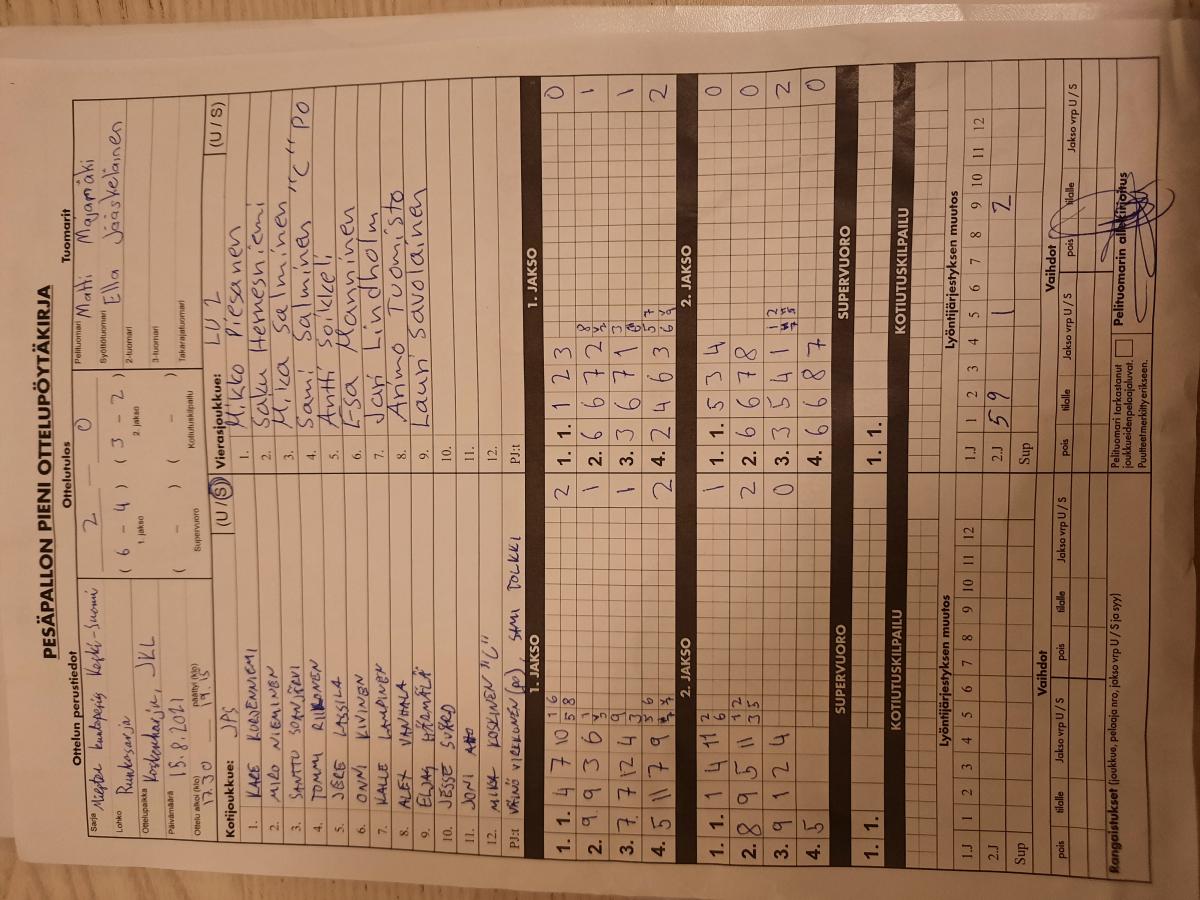 PESÄPALLON PIENI OTTELUPÖYTÄKIRJA
Ottelun perustiedot
Sarja Miesten kuntopesis Keski-Suomi
Lohko Runkosarja
Ottelupaikka Koskenharju, JKL
Päivämäärä 15.8.2021
Ottelu alkoi (klo) 17.30 päättyi (klo) 19.15
Ottelutulos
2 – 0
( 6 – 4 ) ( 3 – 2 )
1. jakso 2. jakso
( – ) ( – )
Supervuoro Kotiutuskilpailu
Tuomarit
Pelituomari Matti Majamäki
Syöttötuomari Ella Jääskeläinen
2-tuomari
3-tuomari
Takarajatuomari
Kotijoukkue: JPS (U / S)
1. KARE KORVENNIEMI
2. MIRO NIEMINEN
3. SANTTU SORNJÄRVI
4. TOMMI RIIKONEN
5. JERE LASSILA
6. ONNI KIVINEN
7. KALLE LAMPINEN
8. ALEX VANHALA
9. ELJAS HÄRMÄLÄ
10. JESSE SVÄRD
11. JONI
12. MIKA KOSKINEN "C"
PJ:t VÄINÖ VIRKKUNEN (po), SAMU TOLKKI
Vierasjoukkue: LU 2 (U / S)
1. Mikko Piesanen
2. Saku Hernesniemi
3. Mika Salminen
4. Sami Salminen "C" PO
5. Antti Soikkeli
6. Esa Manninen
7. Jari Lindholm
8. Arimo Tuomisto
9. Lauri Savolainen
10.
11.
12.
PJ:t
1. JAKSO 1. JAKSO
1. 1. 4 7 10 1 6 5 8 2
2. 9 9 3 6 1
3. 7 7 12 4 9 3 1
4. 5 11 7 9 5 6 2
1. 1. 1 2 3 0
2. 6 6 7 2 8 1
3. 3 6 7 1 3 1
4. 2 4 6 3 5 7 6 9 2
2. JAKSO 2. JAKSO
1. 1. 1 4 11 2 6 1
2. 8 9 5 11 1 2 3 5 2
3. 9 1 2 4 0
4. 5
1. 1. 5 3 4 0
2. 6 6 7 8 0
3. 3 5 4 1 1 2 2
4. 6 6 8 7 0
SUPERVUORO SUPERVUORO
1. 1. 1. 1.
KOTIUTUSKILPAILU KOTIUTUSKILPAILU
Lyöntijärjestyksen muutos
1.J 1 2 3 4 5 6 7 8 9 10 11 12
2.J
Sup
Lyöntijärjestyksen muutos
1.J 1 2 3 4 5 6 7 8 9 10 11 12
2.J 5 9 1 2
Sup
Vaihdot
pois tilalle Jakso vrp U / S pois tilalle Jakso vrp U / S
Vaihdot
pois tilalle Jakso vrp U / S pois tilalle Jakso vrp U / S
Rangaistukset (joukkue, pelaaja nro, jakso vrp U / S ja syy)
Pelituomari tarkastanut
joukkueiden pelaajaluvat.
Puutteet merkitty erikseen.
Pelituomarin allekirjoitus